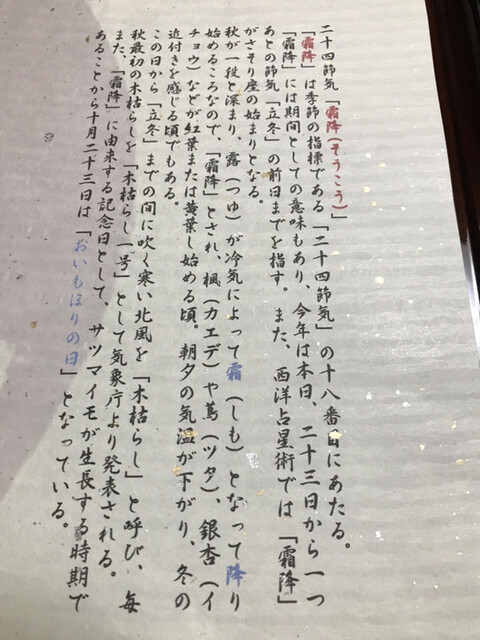 二十四節気「霜降(そうこう)」
「霜降」は季節の指標である「二十四節気」の十八番目にあたる。
「霜降」には期間としての意味もあり、今年は本日、二十三日から一つ
あとの節気「立冬」の前日までを指す。また、西洋占星術では「霜降」
がさそり座の始まりとなる。
秋が一段と深まり、露(つゆ)が冷気によって霜(しも)となって降り
始めるころなので、「霜降」とされ、楓(カエデ)や蔦(ツタ)、銀杏(イ
チョウ)などが紅葉または黄葉し始める頃。朝夕の気温が下がり、冬の
近付きを感じる頃でもある。
この日から「立冬」までの間に吹く寒い北風を「木枯らし」と呼び、毎
秋最初の木枯らしを「木枯らし一号」として気象庁より発表される。
また、「霜降」に由来する記念日として、サツマイモが生長する時期で
あることから十月二十三日は「おいもほりの日」となっている。